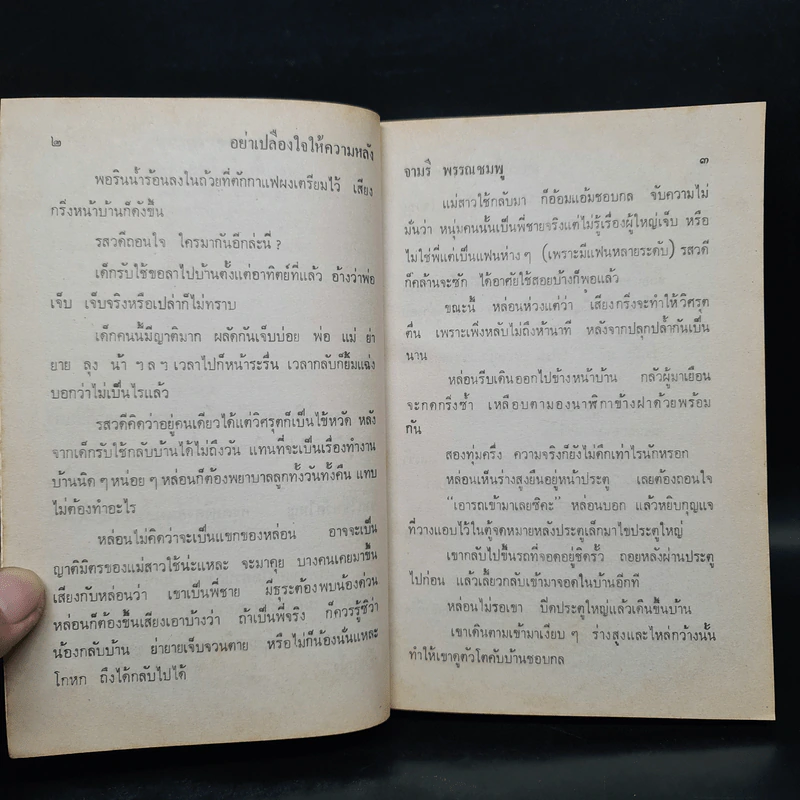 ๒ อย่าเปลืองใจให้ความหลัง
พอรินน้ำร้อนลงในถ้วยที่ตักกาแฟผงเตรียมไว้ เสียง
กริ่งหน้าบ้านก็ดังขึ้น
รสวดีถอนใจ ใครมากันอีกล่ะนี่ ?
เด็กรับใช้ขอลาไปบ้านตั้งแต่อาทิตย์ที่แล้ว อ้างว่าพ่อ
เจ็บ เจ็บจริงหรือเปล่าก็ไม่ทราบ
เด็กคนนี้มีญาติมาก ผลัดกันเจ็บบ่อย พ่อ แม่ ย่า
ยาย ลุง น้า ฯลฯ เวลาไปก็หน้าระรื่น เวลากลับก็ยิ้มแฉ่ง
บอกว่าไม่เป็นไรแล้ว
รสวดีคิดว่าอยู่คนเดียวได้แต่วิศรุตก็เป็นไข้หวัด หลัง
จากเด็กรับใช้กลับบ้านได้ไม่ถึงวัน แทนที่จะเป็นเรื่องทำงาน
บ้านนิด ๆ หน่อย ๆ หล่อนก็ต้องพยาบาลลูกทั้งวันทั้งคืน แทบ
ไม่ต้องทำอะไร
หล่อนไม่คิดว่าจะเป็นแขกของหล่อน อาจจะเป็น
ญาติมิตรของแม่สาวใช้น่ะแหละ จะมาคุย บางคนเคยมาขึ้น
เสียงกับหล่อนว่า เขาเป็นพี่ชาย มีธุระต้องพบน้องด่วน
หล่อนก็ต้องขึ้นเสียงเอาบ้างว่า ถ้าเป็นพี่จริง ก็ควรรู้ซีว่า
น้องกลับบ้าน ย่ายายเจ็บจวนตาย หรือไม่ก็น้องนั่นแหละ
โกหก ถึงได้กลับไปได้
จามรี พรรณชมพู ๓
แม่สาวใช้กลับมา ก็อ้อมแอ้มชอบกล จับความไม่
มั่นว่า หนุ่มคนนั้นเป็นพี่ชายจริงแต่ไม่รู้เรื่องผู้ใหญ่เจ็บ หรือ
ไม่ใช่พี่แต่เป็นแฟนห่าง ๆ (เพราะมีแฟนหลายระดับ) รสวดี
ก็คล้านจะซัก ได้อาศัยใช้สอยบ้างก็พอแล้ว
ขณะนี้ หล่อนห่วงแต่ว่า เสียงกริ่งจะทำให้วิศรุต
ตื่น เพราะเพิ่งหลับไม่ถึงห้านาที หลังจากปลุกปล้ำกันเป็น
นาน
หล่อนรีบเดินออกไปข้างหน้าบ้าน กลัวผู้มาเยือน
จะกดกริ่งซ้ำ เหลือบตามองนาฬิกาข้างฝาด้วยพร้อม
กัน
สองทุ่มครึ่ง ความจริงก็ยังไม่ดึกเท่าไรนักหรอก
หล่อนเห็นร่างสูงยืนอยู่หน้าประตู เลยต้องถอนใจ
"เอารถเข้ามาเลยซิคะ" หล่อนบอก แล้วหยิบกุญแจ
ที่วางแอบไว้ในตู้จดหมายหลังประตูเล็กมาไขประตูใหญ่
เขากลับไปขึ้นรถที่จอดอยู่ชิดรั้ว ถอยหลังผ่านประตู
ไปก่อน แล้วเลี้ยวกลับเข้ามาจอดในบ้านอีกที
หล่อนไม่รอเขา ปิดประตูใหญ่แล้วเดินขึ้นบ้าน
เขาเดินตามเข้ามาเงียบ ๆ ร่างสูงและไหล่กว้างนั้น
ทำให้เขาดูตัวโตคับบ้านชอบกล